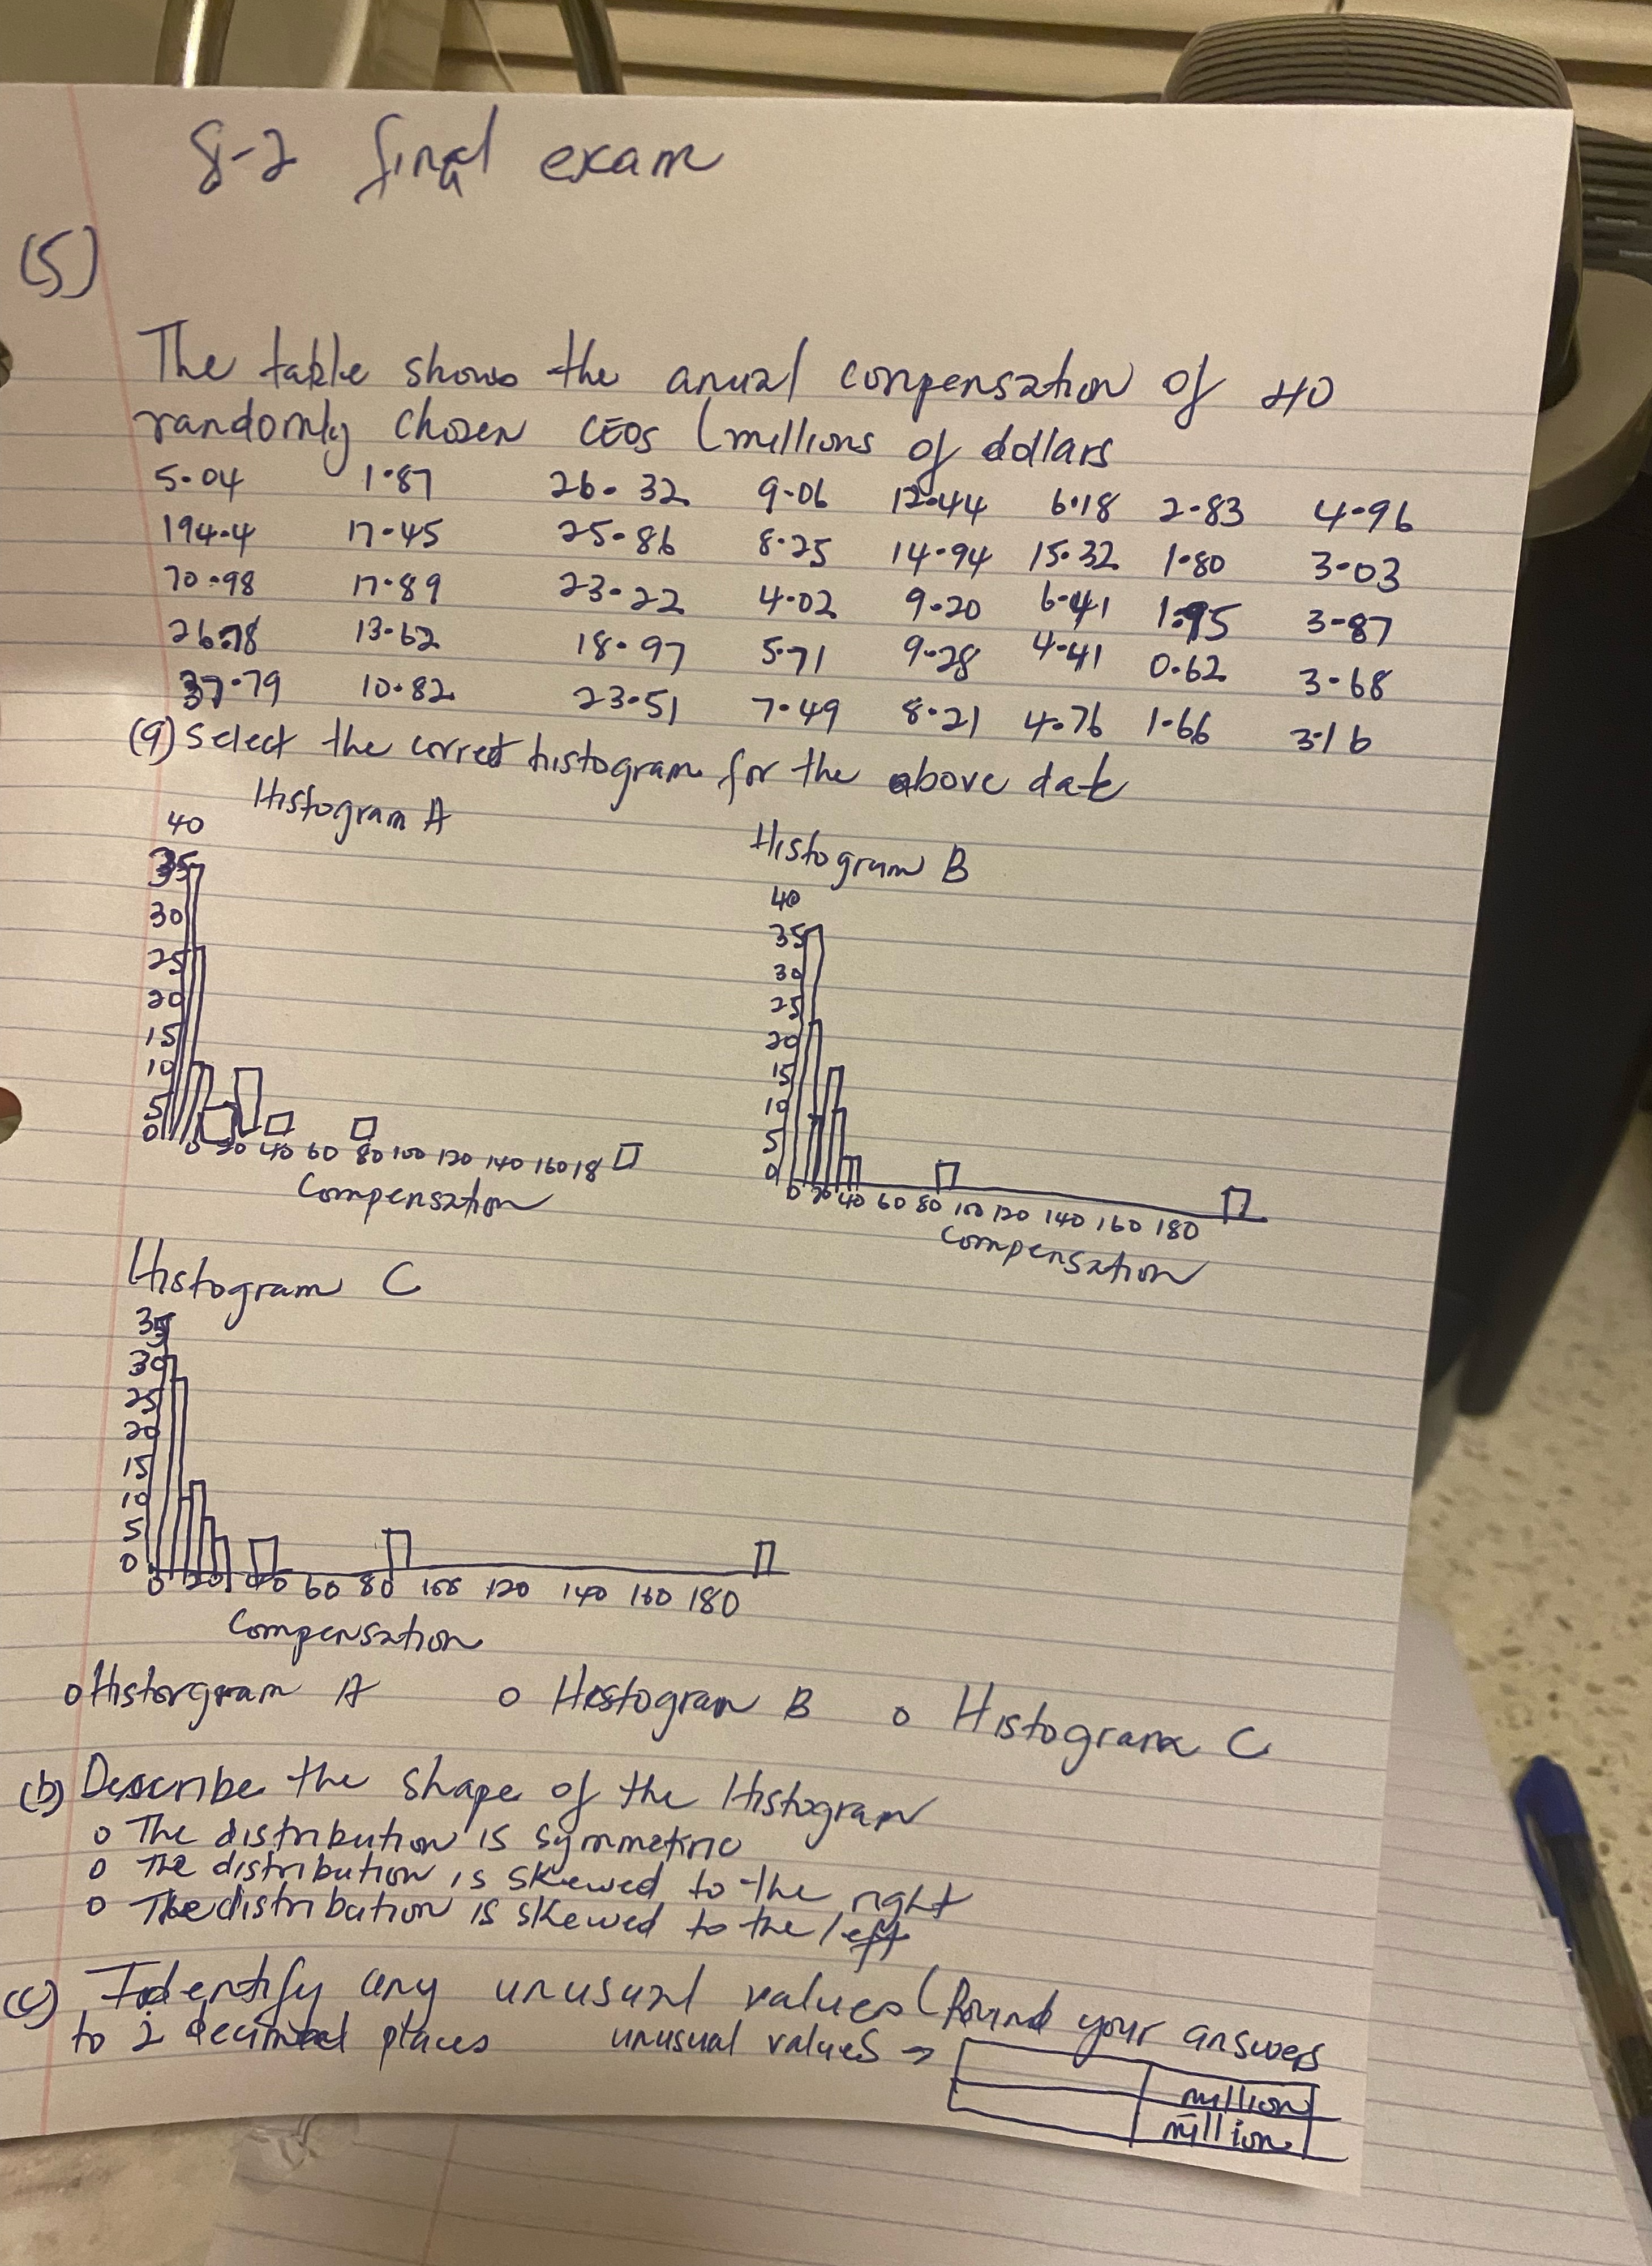 8-2 final exam
(5)
The table shows the anual compensation of 40
randomly chosen CEOs (millions of dollars
5.04 1.87 26.32 9.06 12.44 6.18 2.83 4.96
194.4 17.45 25.86 8.25 14.94 15.32 1.80 3.03
70.98 17.89 23.22 4.02 9.20 6.41 1.95 3.87
26.78 13.62 18.97 5.71 9.28 4.41 0.62 3.68
37.79 10.82 23.51 7.49 8.21 4.76 1.66 3.16
(a) Select the correct histogram for the above date
Histogram A
40
35
30
25
20
15
10
5
0
0 20 40 60 80 100 120 140 160 18
Compensation
Histogram B
40
35
30
25
20
15
10
5
0
0 20 40 60 80 100 120 140 160 180
Compensation
Histogram C
35
30
25
20
15
10
5
0
0 20 40 60 80 100 120 140 160 180
Compensation
o Historgram A o Histogram B o Histogram C
(b) Describe the shape of the Histogram
o The distribution is symmetric
o The distribution is skewed to the right
o The distribution is skewed to the left
(c) Identify any unusual values (Round your answers
to 2 decimal places unusual values →
million
million